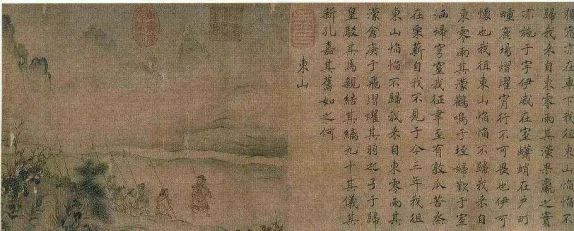 獨宿亦在車下我徂東山慆慆不
歸我來自東零雨其濛果臝之實
亦施于宇伊威在室蠨蛸在戶町
畽鹿場熠燿宵行不可畏也伊可
懷也我徂東山慆慆不歸我來自
東零雨其濛鸛鳴于垤婦歎于室
洒埽穹窒我征聿至有敦瓜苦烝
在栗薪自我不見于今三年我徂
東山慆慆不歸我來自東零雨其
濛倉庚于飛熠燿其羽之子于歸
皇駁其馬親結其縭九十其儀其
新孔嘉其舊如之何
東山